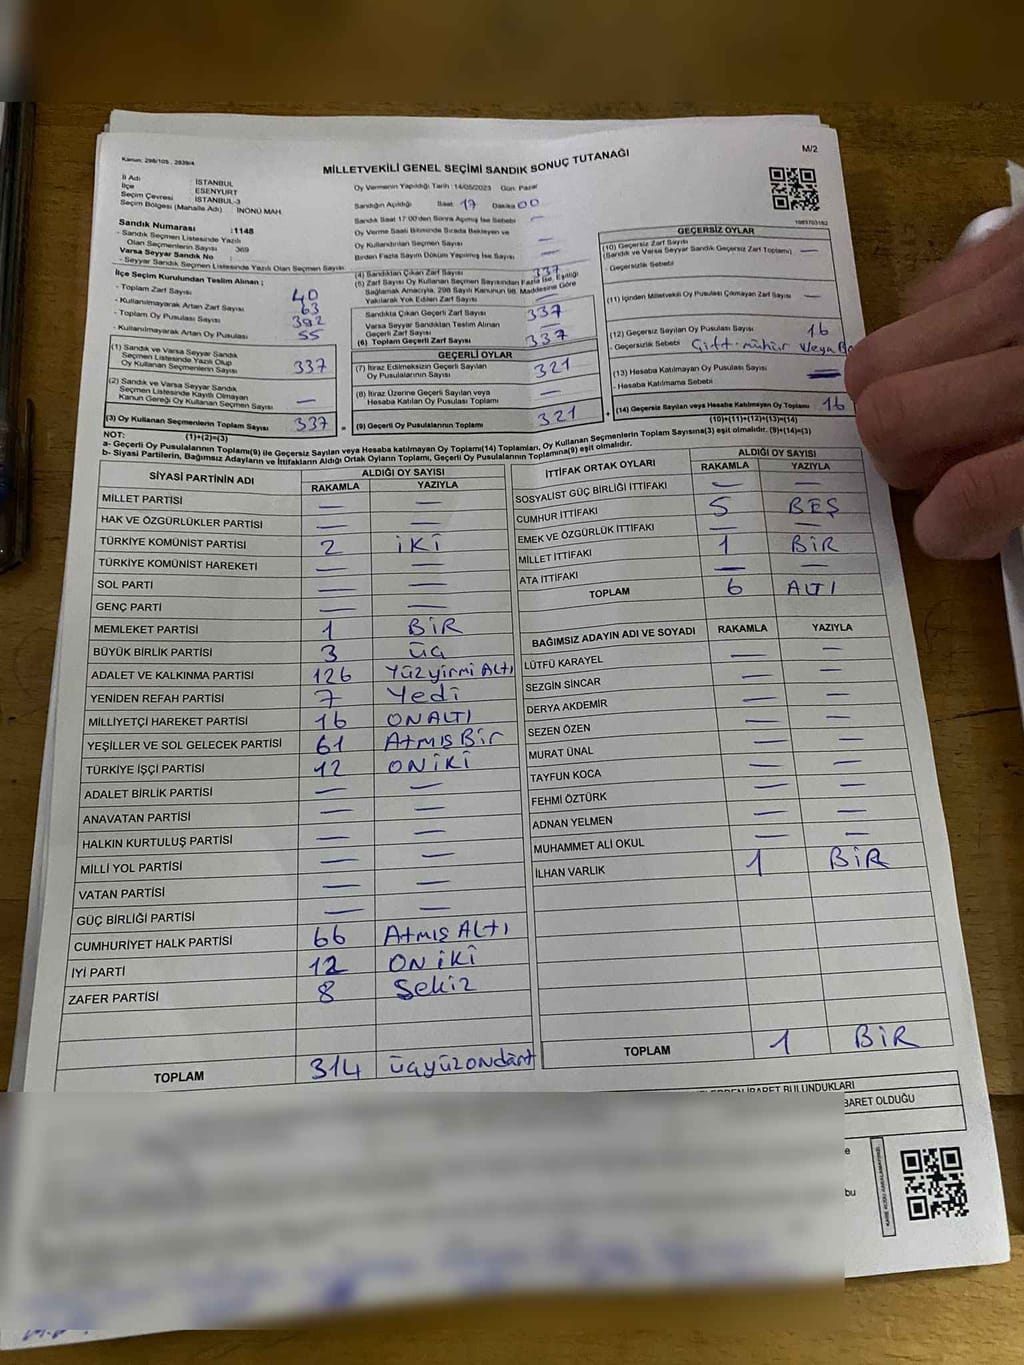 Kanun: 298/105 , 2839/4
MİLLETVEKİLİ GENEL SEÇİMİ SANDIK SONUÇ TUTANAĞI
M/2
İl Adı : İSTANBUL
İlçe : ESENYURT
Seçim Çevresi : İSTANBUL-3
Seçim Bölgesi (Mahalle Adı) : İNÖNÜ MAH.
Sandık Numarası : 1148
- Sandık Seçmen Listesinde Yazılı
Olan Seçmenlerin Sayısı : 369
Varsa Seyyar Sandık No :
- Seyyar Sandık Seçmen Listesinde Yazılı Olan Seçmen Sayısı:
İlçe Seçim Kurulundan Teslim Alınan ;
- Toplam Zarf Sayısı 40
- Kullanılmayarak Artan Zarf Sayısı 63
- Toplam Oy Pusulası Sayısı 392
- Kullanılmayarak Artan Oy Pusulası 55
(1) Sandık ve Varsa Seyyar Sandık
Seçmen Listesinde Yazılı Olup
Oy Kullanan Seçmenlerin Sayısı 337
(2) Sandık ve Varsa Seyyar Sandık
Seçmen Listesinde Kayıtlı Olmayan
Kanun Gereği Oy Kullanan Seçmen Sayısı —
(3) Oy Kullanan Seçmenlerin Toplam Sayısı 337
(1)+(2)=(3)
Oy Vermenin Yapıldığı Tarih :14/05/2023 Gün: Pazar
Sandığın Açıldığı Saat 17 Dakika 00
Sandık Saat 17:00'den Sonra Açılmış İse Sebebi —
Oy Verme Saati Bitiminde Sırada Bekleyen ve
Oy Kullandırılan Seçmen Sayısı —
Birden Fazla Sayım Döküm Yapılmış İse Sayısı —
(4) Sandıktan Çıkan Zarf Sayısı 337
(5) Zarf Sayısı Oy Kullanan Seçmen Sayısından Fazla İse, Eşitliği
Sağlamak Amacıyla, 298 Sayılı Kanunun 98. Maddesine Göre
Yakılarak Yok Edilen Zarf Sayısı —
Sandıkta Çıkan Geçerli Zarf Sayısı 337
Varsa Seyyar Sandıktan Teslim Alınan
Geçerli Zarf Sayısı —
(6) Toplam Geçerli Zarf Sayısı 337
GEÇERLİ OYLAR
(7) İtiraz Edilmeksizin Geçerli Sayılan
Oy Pusulalarının Sayısı 321
(8) İtiraz Üzerine Geçerli Sayılan veya
Hesaba Katılan Oy Pusulası Toplamı —
= (9) Geçerli Oy Pusulalarının Toplamı 321
GEÇERSİZ OYLAR
(10) Geçersiz Zarf Sayısı
(Sandık ve Varsa Seyyar Sandık Geçersiz Zarf Toplamı) —
- Geçersizlik Sebebi
(11) İçinden Milletvekili Oy Pusulası Çıkmayan Zarf Sayısı —
(12) Geçersiz Sayılan Oy Pusulası Sayısı 16
- Geçersizlik Sebebi Çift mühür veya
(13) Hesaba Katılmayan Oy Pusulası Sayısı —
- Hesaba Katılmama Sebebi
+ (14) Geçersiz Sayılan veya Hesaba Katılmayan Oy Toplamı 16
(10)+(11)+(12)+(13)=(14)
NOT:
a- Geçerli Oy Pusulalarının Toplamı(9) ile Geçersiz Sayılan veya Hesaba katılmayan Oy Toplamı(14) Toplamları, Oy Kullanan Seçmenlerin Toplam Sayısına(3) eşit olmalıdır. (9)+(14)=(3)
b- Siyasi Partilerin, Bağımsız Adayların ve İttifakların Aldığı Ortak Oyların Toplamı, Geçerli Oy Pusulalarının Toplamına(9) eşit olmalıdır.
SİYASİ PARTİNİN ADI ALDIĞI OY SAYISI
RAKAMLA YAZIYLA
MİLLET PARTİSİ — —
HAK VE ÖZGÜRLÜKLER PARTİSİ — —
TÜRKİYE KOMÜNİST PARTİSİ 2 İKİ
TÜRKİYE KOMÜNİST HAREKETİ — —
SOL PARTİ — —
GENÇ PARTİ — —
MEMLEKET PARTİSİ 1 BİR
BÜYÜK BİRLİK PARTİSİ 3 üç
ADALET VE KALKINMA PARTİSİ 126 Yüzyirmi Altı
YENİDEN REFAH PARTİSİ 7 Yedi
MİLLİYETÇİ HAREKET PARTİSİ 16 ONALTI
YEŞİLLER VE SOL GELECEK PARTİSİ 61 Atmış Bir
TÜRKİYE İŞÇİ PARTİSİ 12 ONİKİ
ADALET BİRLİK PARTİSİ — —
ANAVATAN PARTİSİ — —
HALKIN KURTULUŞ PARTİSİ — —
MİLLİ YOL PARTİSİ — —
VATAN PARTİSİ — —
GÜÇ BİRLİĞİ PARTİSİ — —
CUMHURİYET HALK PARTİSİ 66 Atmış Altı
İYİ PARTİ 12 ON İKİ
ZAFER PARTİSİ 8 Sekiz
TOPLAM 314 üçyüzondört
İTTİFAK ORTAK OYLARI ALDIĞI OY SAYISI
RAKAMLA YAZIYLA
SOSYALİST GÜÇ BİRLİĞİ İTTİFAKI — —
CUMHUR İTTİFAKI 5 BEŞ
EMEK VE ÖZGÜRLÜK İTTİFAKI — —
MİLLET İTTİFAKI 1 BİR
ATA İTTİFAKI — —
TOPLAM 6 ALTI
BAĞIMSIZ ADAYIN ADI VE SOYADI RAKAMLA YAZIYLA
LÜTFÜ KARAYEL — —
SEZGİN SİNCAR — —
DERYA AKDEMİR — —
SEZEN ÖZEN — —
MURAT ÜNAL — —
TAYFUN KOCA — —
FEHMİ ÖZTÜRK — —
ADNAN YELMEN — —
MUHAMMET ALİ OKUL — —
İLHAN VARLIK 1 BİR
TOPLAM 1 BİR
İBARET BULUNDUKLARI
BARET OLDUĞU
e
bu